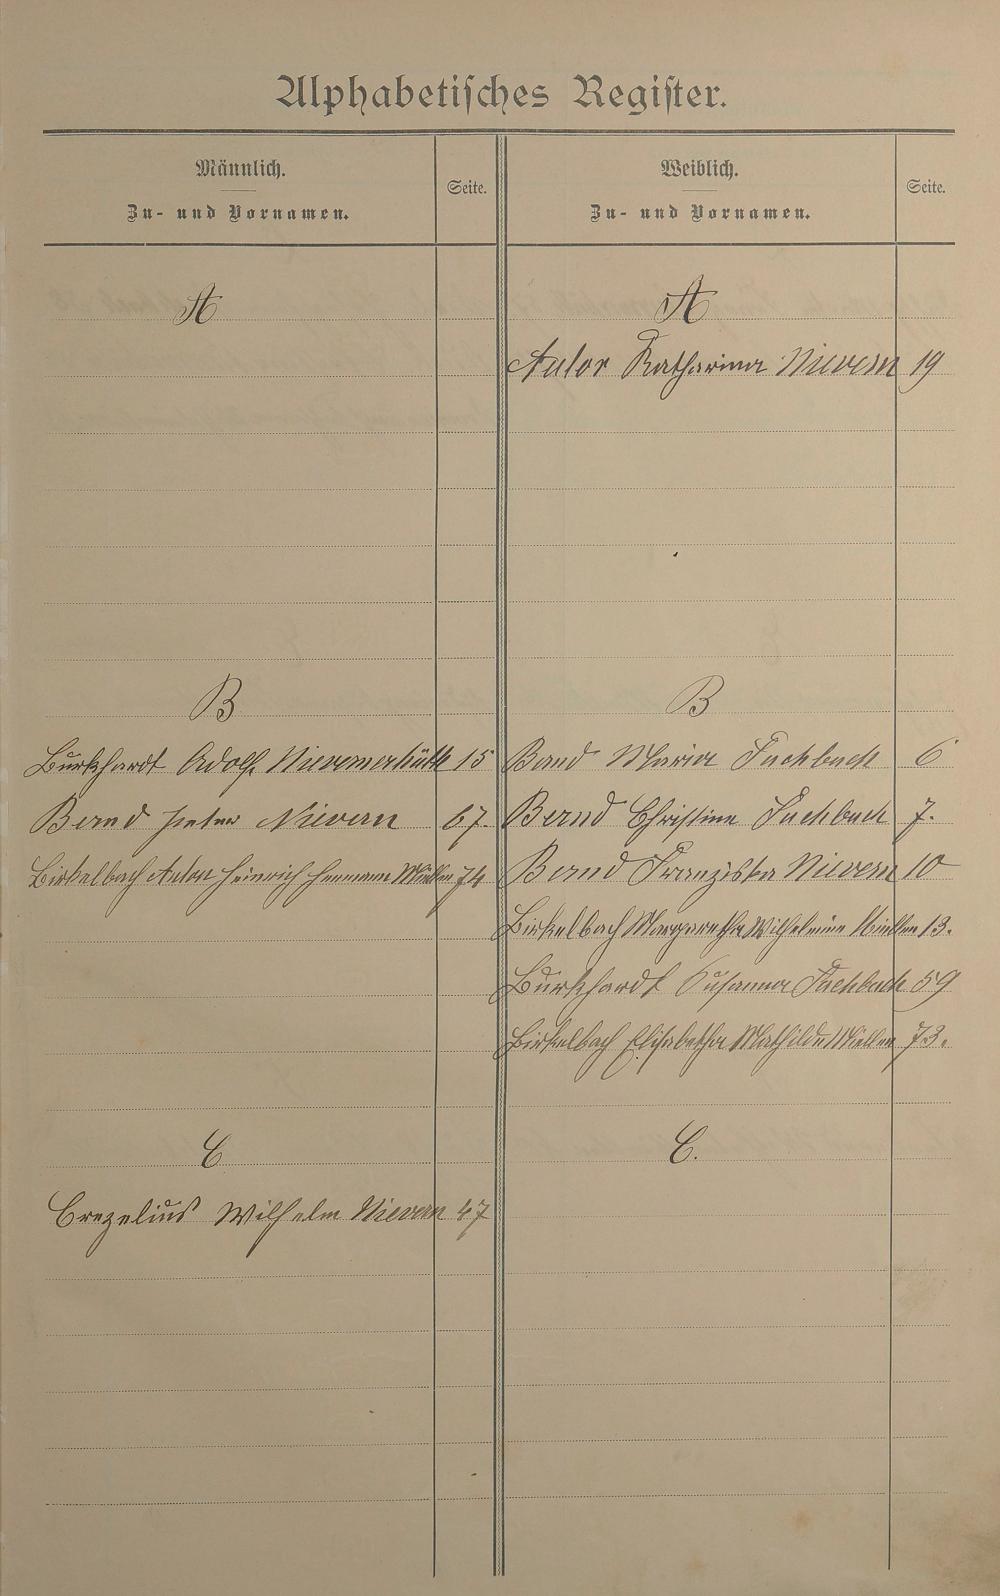 Alphabetisches Register.
Männlich.
Zu- und Vornamen.
Seite.
Weiblich.
Zu- und Vornamen.
Seite.
A
A
Autor Katharina Nievern 19
B
B
Burkhardt Adolf Nievernerhütte 15
Band Maria Fachbach 6
Bernd Peter Nievern 67.
Bernd Christine Fachbach 7.
Birkelbach Anton Heinrich Hermann Miellen 74
Bernd Franziska Nievern 10
Birkelbach Margaretha Wilhelmine Miellen 13.
Burkhardt Susanna Fachbach 59
Birkelbach Elisabetha Mathilde Miellen 73.
C
C.
Crezelius Wilhelm Nievern 47